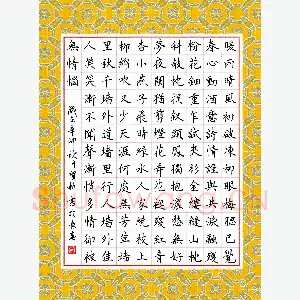 暖雨晴風初破凍柳眼梅腮已覺
春心動酒意詩情誰與共淚融殘
粉花鈿重乍試夾衫金縷縫山枕
斜欹枕損釵頭鳳獨抱濃愁無好
夢夜闌猶剪燈花弄花褪殘紅青
杏小燕子飛時綠水人家繞枝上
柳綿吹又少天涯何處無芳草墻
里秋千墻外道墻外行人墻里佳
人笑笑漸不聞聲漸悄多情卻被
無情惱
辛卯秋月